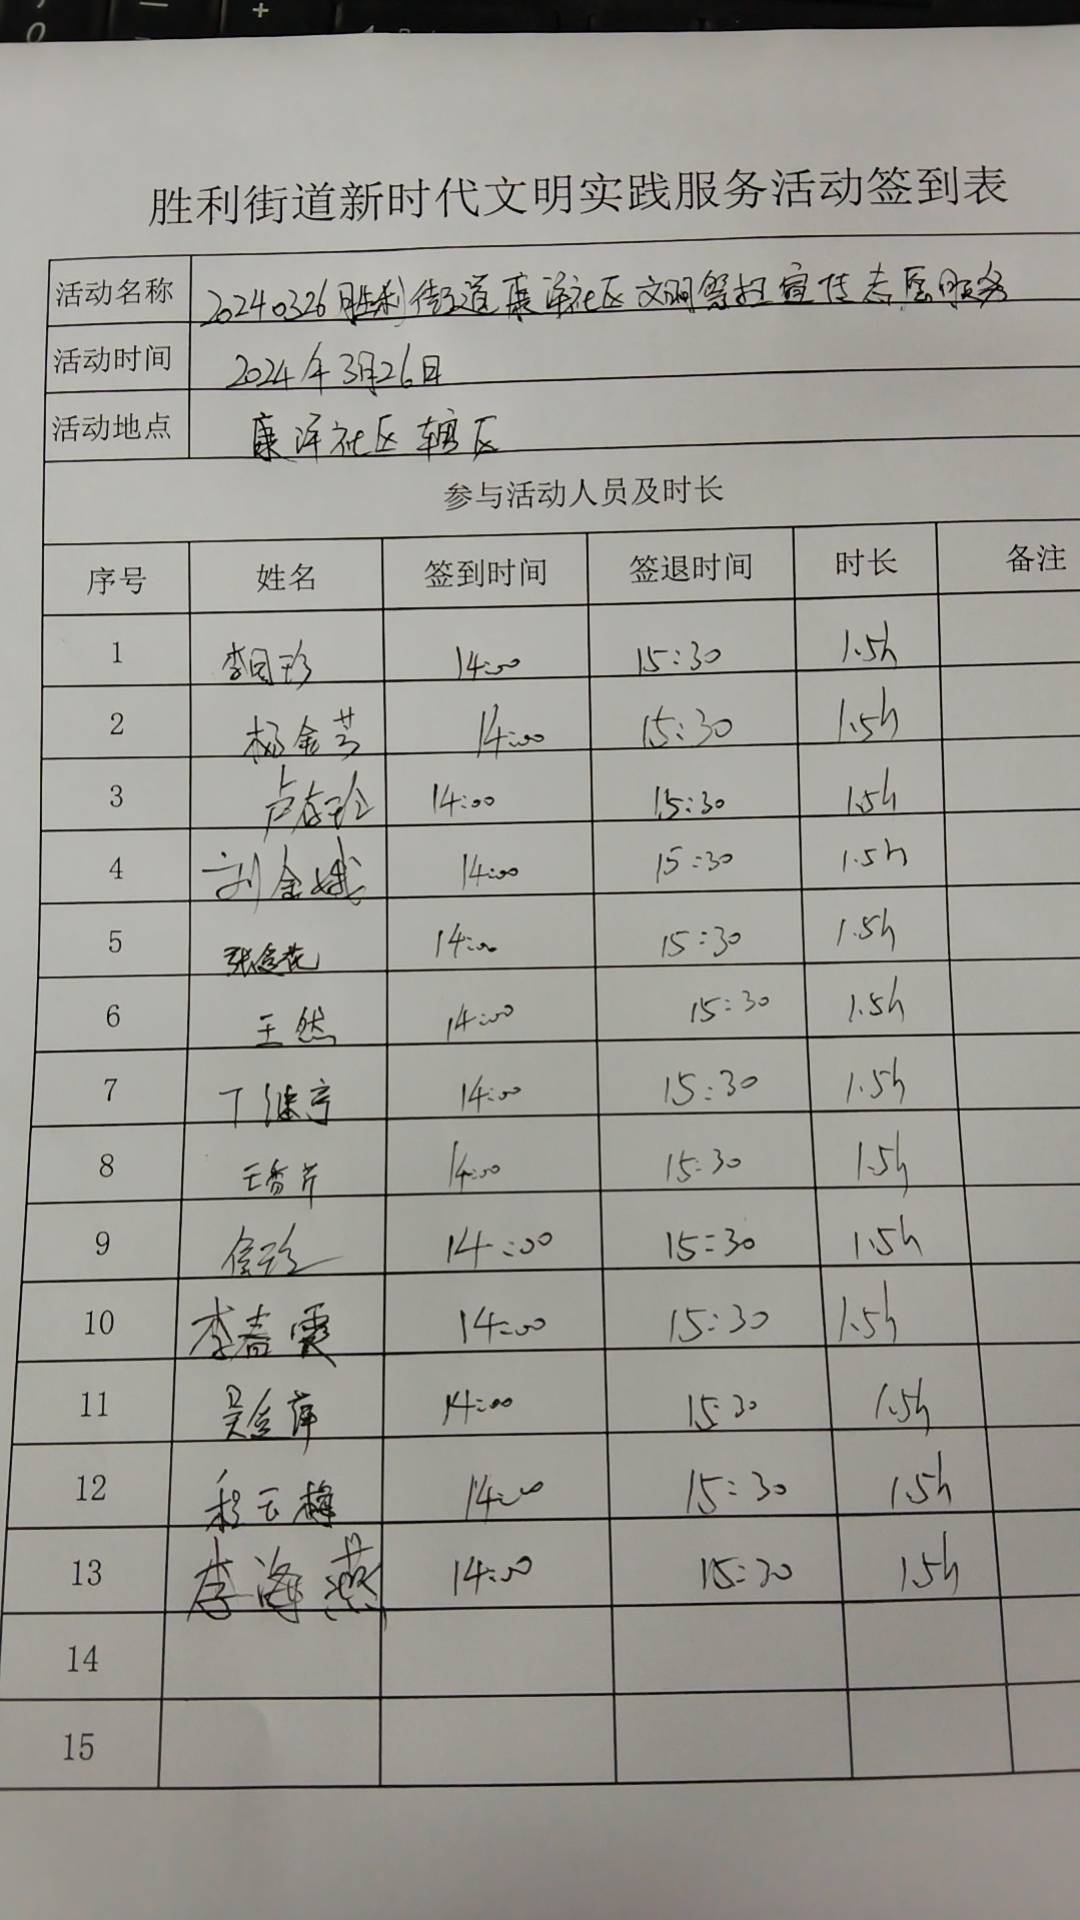 胜利街道新时代文明实践服务活动签到表
活动名称 20240326胜利街道康泽社区文明祭扫宣传志愿服务
活动时间 2024年3月26日
活动地点 康泽社区辖区
参与活动人员及时长
序号 姓名 签到时间 签退时间 时长 备注
1 14:00 15:30 1.5h
2 杨金芳 14:00 15:30 1.5h
3 卢存珍 14:00 15:30 1.5h
4 刘金娥 14:00 15:30 1.5h
5 张金花 14:00 15:30 1.5h
6 王然 14:00 15:30 1.5h
7 14:00 15:30 1.5h
8 王香芹 14:00 15:30 1.5h
9 徐珍 14:00 15:30 1.5h
10 李春霞 14:00 15:30 1.5h
11 吴金萍 14:00 15:30 1.5h
12 程云梅 14:00 15:30 1.5h
13 李海燕 14:00 15:30 1.5h
14
15